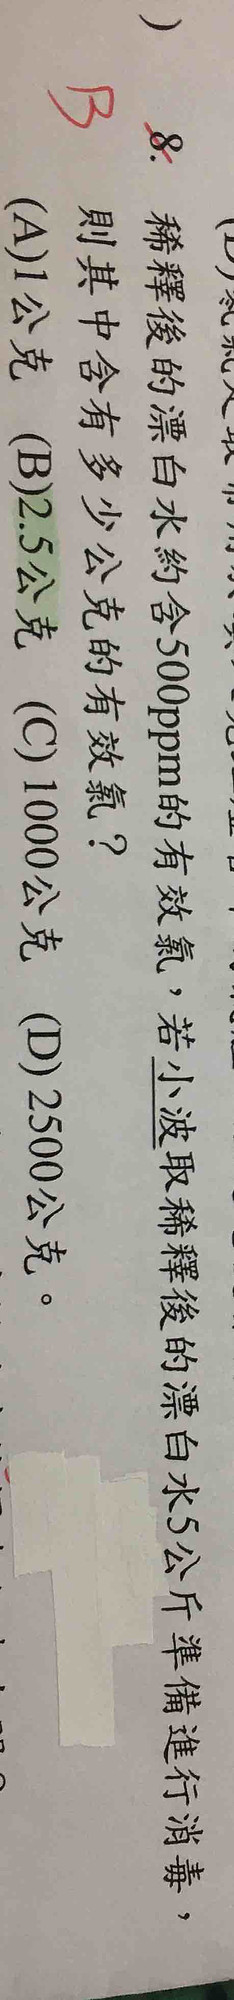 )
8. 稀釋後的漂白水約含500ppm的有效氯，若小波取稀釋後的漂白水5公斤準備進行消毒，
則其中含有多少公克的有效氯？
B
(A)1公克 (B)2.5公克 (C) 1000公克 (D) 2500公克。